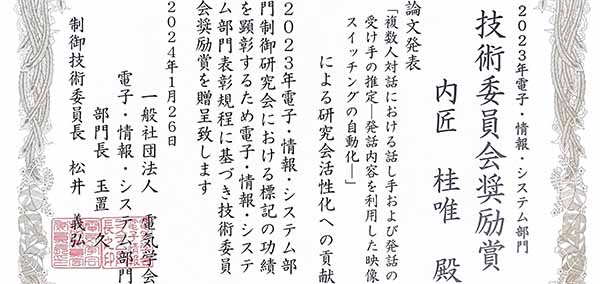 2023年電子・情報・システム部門
技術委員会奨励賞
内匠 桂唯 殿
論文発表
「複数人対話における話し手および発話の
受け手の推定―発話内容を利用した映像
スイッチングの自動化―」
による研究会活性化への貢献
2023年電子・情報・システム部
門制御研究会における標記の功績
を顕彰するため電子・情報・システ
ム部門表彰規程に基づき技術委員
会奨励賞を贈呈致します
2024年1月26日
一般社団法人 電気学会
電子・情報・システム部門
部門長 玉置 久
制御技術委員長 松井 義弘